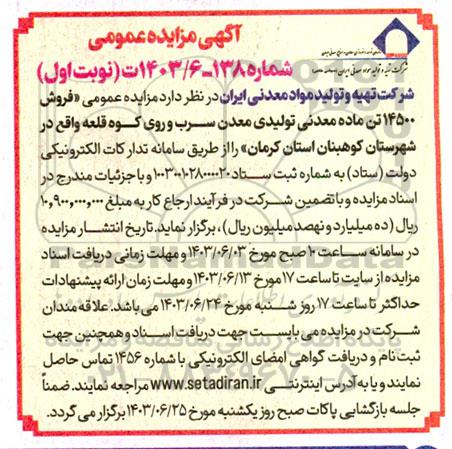 آگهی مزایده عمومی
شماره ۱۳۸-۱۴۰۳/۶ت (نوبت اول)
شرکت تهیه و تولید مواد معدنی ایران
شرکت تهیه و تولید مواد معدنی ایران در نظر دارد مزایده عمومی «فروش
۱۴۵۰۰ تن ماده معدنی تولیدی معدن سرب و روی کوه قلعه واقع در
شهرستان کوهبنان استان کرمان» را از طریق سامانه تدارکات الکترونیکی
دولت (ستاد) به شماره ثبت ستاد ۱۰۰۳۰۰۱۰۲۸۰۰۰۰۲۰ و با جزئیات مندرج در
اسناد مزایده و با تضمین شرکت در فرآیند ارجاع کار به مبلغ ۱۰,۹۰۰,۰۰۰,۰۰۰
ریال (ده میلیارد و نهصد میلیون ریال)، برگزار نماید. تاریخ انتشار مزایده
در سامانه ساعت ۱۰ صبح مورخ ۱۴۰۳/۰۶/۰۳ و مهلت زمانی دریافت اسناد
مزایده از سایت تا ساعت ۱۷ مورخ ۱۴۰۳/۰۶/۱۳ و مهلت زمان ارائه پیشنهادات
حداکثر تا ساعت ۱۷ روز شنبه مورخ ۱۴۰۳/۰۶/۲۴ می باشد. علاقه مندان
شرکت در مزایده می بایست جهت دریافت اسناد و همچنین جهت
ثبت نام و دریافت گواهی امضای الکترونیکی با شماره ۱۴۵۶ تماس حاصل
نمایند و یا به آدرس اینترنتی www.setadiran.ir مراجعه نمایند. ضمناً
جلسه بازگشایی پاکات صبح روز یکشنبه مورخ ۱۴۰۳/۰۶/۲۵ برگزار می گردد.